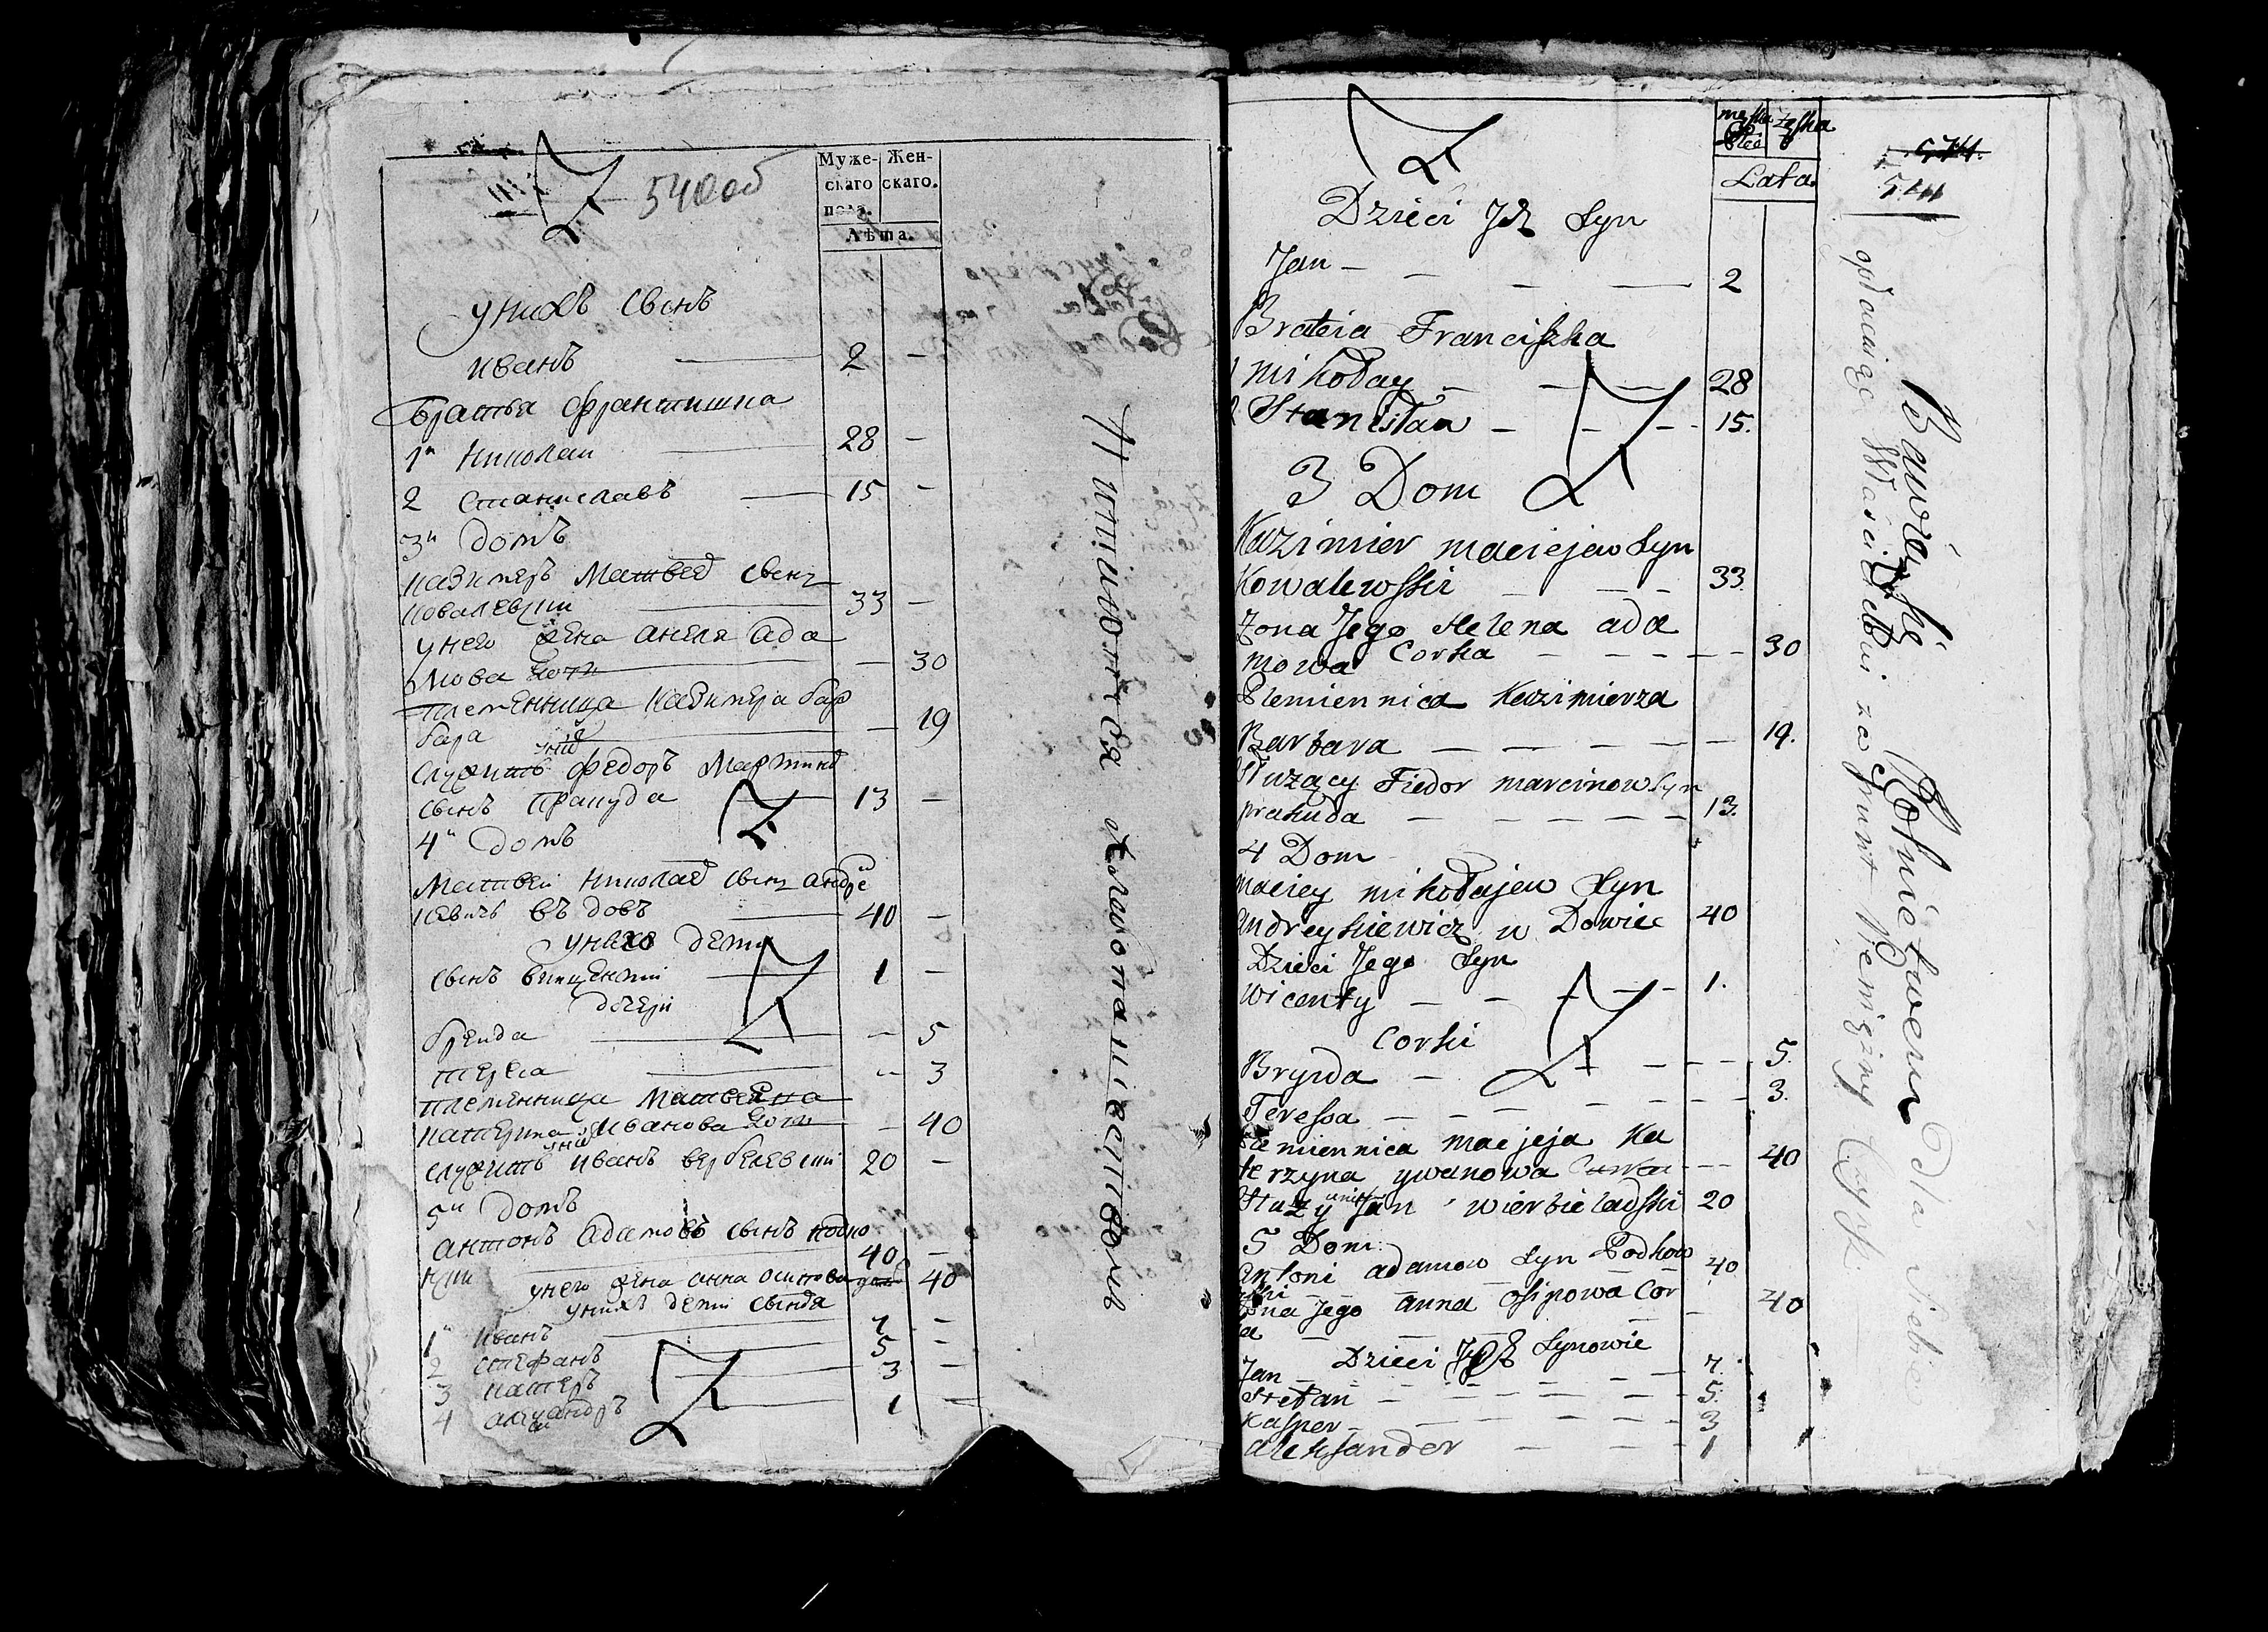 540об
Муже- Жен-
скаго скаго.
пола.
Лѣта.
у нихъ сынъ
иванъ 2 -
братья франтишка
1й николаи 28 -
2 станиславъ 15 -
3й домъ
казимеръ Матвеевъ сынъ
ковалевски 33 -
у него жена анеля ада
мова - 30
племенница казимера бар
бара - 19
у них
служитъ федоръ Мартинов
сынъ пракуда 13 -
4й домъ
Матвей николаев сынъ андре
кевичъ вдовъ 40 -
у него дети
сынъ винценти 1 -
дочери
бренда - 5
тереса - 3
племенница Матвея ка
катерина иванова - 40
у них
служитъ иванъ вербелевски 20 -
5й домъ
антонъ адамовъ сынъ подко 40 -
у него жена анна осипова 40
у нихъ дети сыновя
1й иванъ 7 -
2 стефанъ 5 -
3 касперъ 3 -
4 александръ 1 -
męska żeska
Płeć
Lata
Dzieci Jch Syn
Jan - - - - 2
Bracia Franciszka
1 mikołay - - - 28
2 Stanisław - - - 15.
3 Dom
Kazimier maciejew Syn
Kowalewsski - - - 33.
Zona Jego Helena ada
mowa Corka - - - - - 30
Plemiennica Kazimierza
Barbara - - - - - - 19.
Służący Fiedor marcinow Syn
prakuda - - - - - 13.
4 Dom
maciey mikołajew Syn
andreykiewicz w Dowiec 40
Dzieci Jego Syn
wicenty - - - - - 1.
Corki
Brynda - - - - - 5.
Teressa - - - - - - - - 3.
Plemiennica maciejeja Ka
terzyna ywanowa Curka - - - 40
Służy unich Jan wierbieładski 20
5 Dom
Antoni adamow Syn Podkow 40
ski - -
Zona Jego anna osipowa Cor - 40
ka
Dzieci Jch Synowie
Jan - - - - - 7.
Stefan - - - - - - 5.
Kasper - - - - - - 3
aleksander - - - 1
Bawiące Rolnictwem dla siebie
opłacając właścicielowi za grunt Pieniężny Czynsz